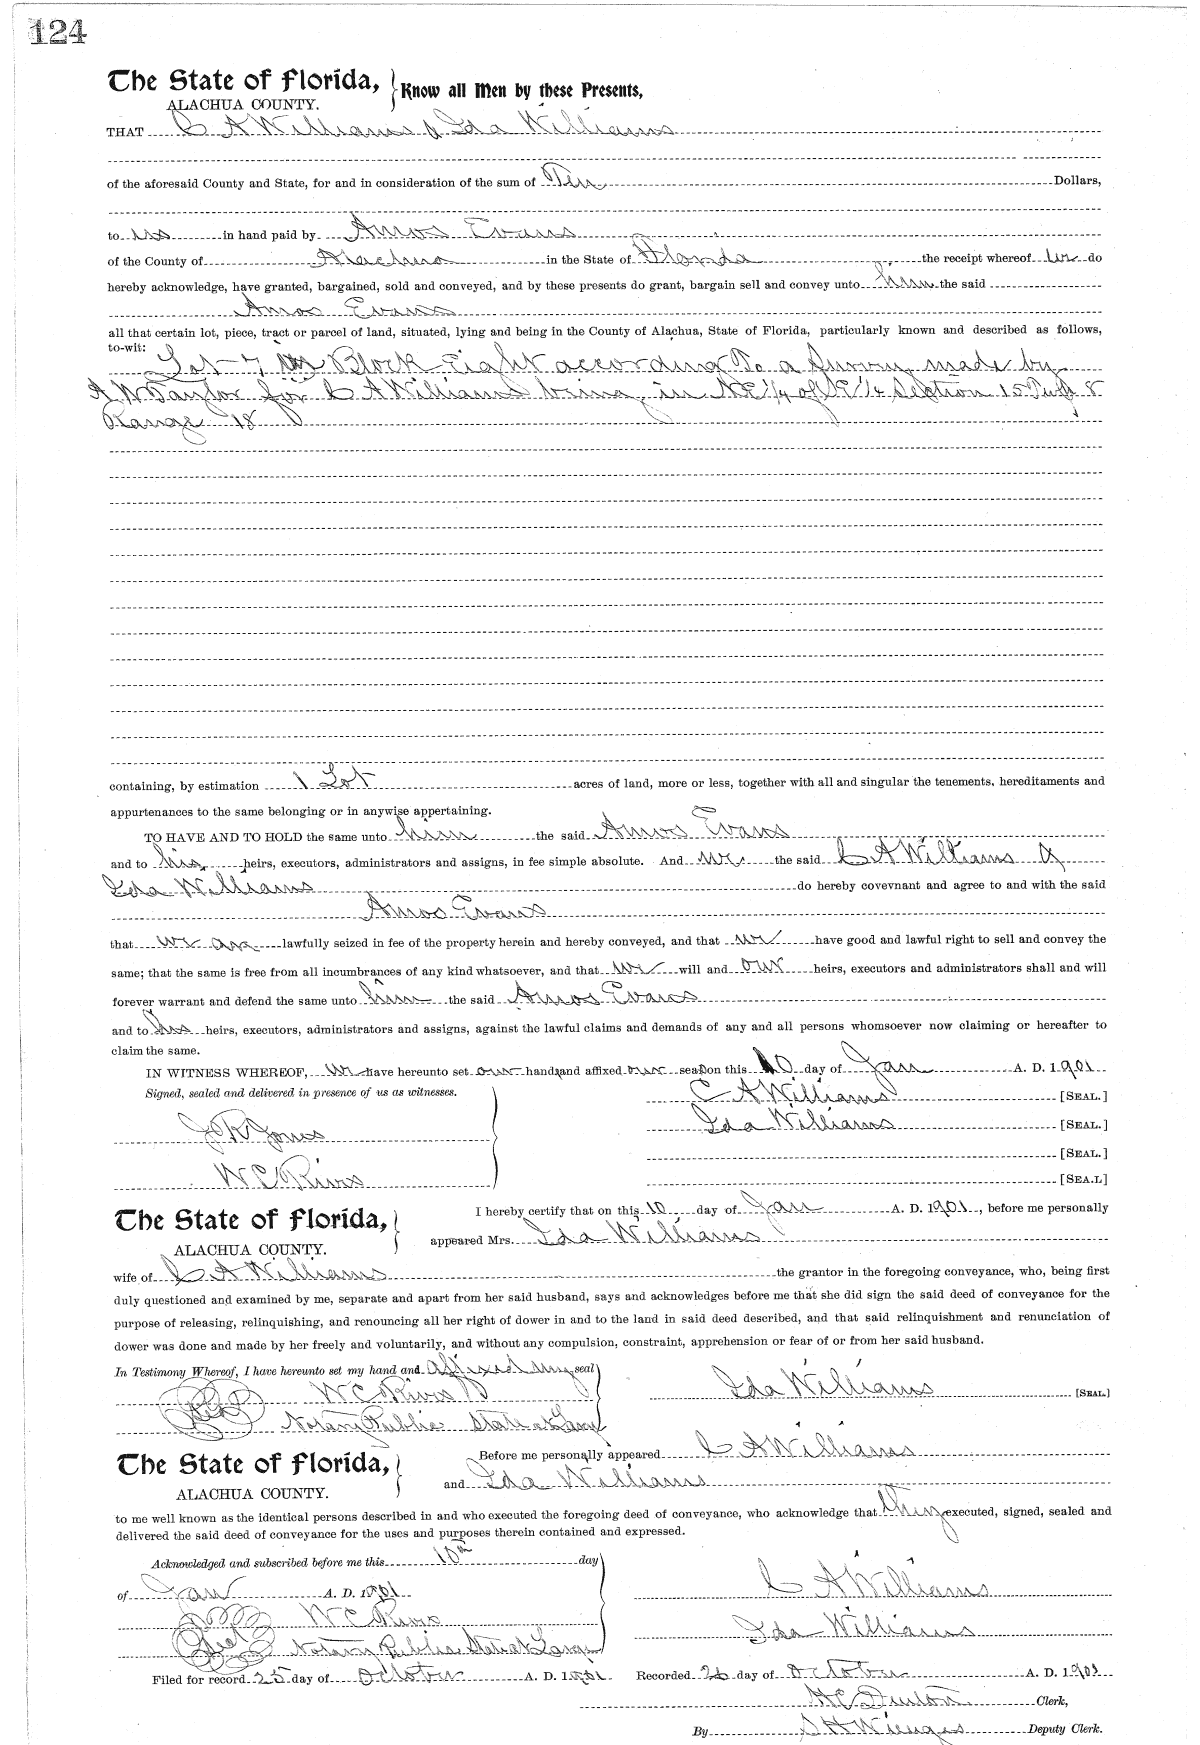 124
The State of Florida, } Know all Men by these Presents,
ALACHUA COUNTY.
THAT C A Williams & Ida Williams
of the aforesaid County and State, for and in consideration of the sum of Ten Dollars,
to us in hand paid by Amos Evans
of the County of Alachua in the State of Florida the receipt whereof we do
hereby acknowledge, have granted, bargained, sold and conveyed, and by these presents do grant, bargain sell and convey unto him the said
Amos Evans
all that certain lot, piece, tract or parcel of land, situated, lying and being in the County of Alachua, State of Florida, particularly known and described as follows,
to-wit: Lot 7 Block Eight according To a Survey made by
A W Taylor for C A Williams being in NE 1/4 of NE 1/4 Section 15 Twp 8
Range 18
containing, by estimation 1 Lot acres of land, more or less, together with all and singular the tenements, hereditaments and
appurtenances to the same belonging or in anywise appertaining.
TO HAVE AND TO HOLD the same unto him the said Amos Evans
and to his heirs, executors, administrators and assigns, in fee simple absolute. And we the said C A Williams &
Ida Williams do hereby covevnant and agree to and with the said
Amos Evans
that we are lawfully seized in fee of the property herein and hereby conveyed, and that we have good and lawful right to sell and convey the
same; that the same is free from all incumbrances of any kind whatsoever, and that we will and our heirs, executors and administrators shall and will
forever warrant and defend the same unto him the said Amos Evans
and to his heirs, executors, administrators and assigns, against the lawful claims and demands of any and all persons whomsoever now claiming or hereafter to
claim the same.
IN WITNESS WHEREOF, we have hereunto set our hand and affixed our seal on this 10 day of Jan A. D. 1901
Signed, sealed and delivered in presence of us as witnesses. C A Williams [SEAL.]
Ida Williams [SEAL.]
J R Jones [SEAL.]
W C Rives [SEA.L]
The State of Florida, } I hereby certify that on this 10 day of Jan A. D. 1901, before me personally
ALACHUA COUNTY. appeared Mrs. Ida Williams
wife of C A Williams the grantor in the foregoing conveyance, who, being first
duly questioned and examined by me, separate and apart from her said husband, says and acknowledges before me that she did sign the said deed of conveyance for the
purpose of releasing, relinquishing, and renouncing all her right of dower in and to the land in said deed described, and that said relinquishment and renunciation of
dower was done and made by her freely and voluntarily, and without any compulsion, constraint, apprehension or fear of or from her said husband.
In Testimony Whereof, I have hereunto set my hand and affixed my seal
Seal W C Rives Ida Williams [SEAL]
Notary Public State at Large
The State of Florida, } Before me personally appeared C A Williams
ALACHUA COUNTY. and Ida Williams
to me well known as the identical persons described in and who executed the foregoing deed of conveyance, who acknowledge that they executed, signed, sealed and
delivered the said deed of conveyance for the uses and purposes therein contained and expressed.
Acknowledged and subscribed before me this 10th day
of Jan A. D. 1901 C A Williams
W C Rives
Seal Notary Public State at Large Ida Williams
Filed for record 25 day of October A. D. 1901 Recorded 26 day of October A. D. 1901
H C Denton Clerk,
By S H Wienges Deputy Clerk.